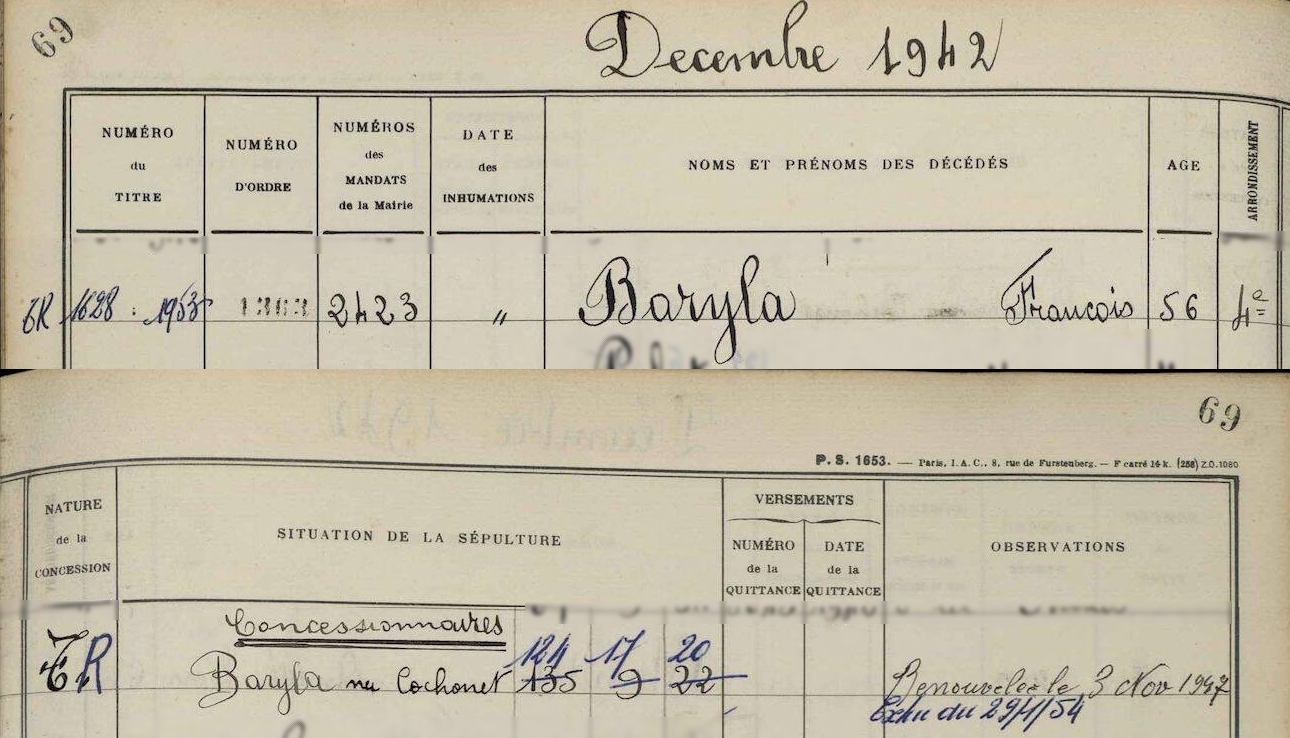 69
Decembre 1942
NUMÉRO du TITRE
NUMÉRO D'ORDRE
NUMÉROS des MANDATS de la Mairie
DATE des INHUMATIONS
NOMS ET PRÉNOMS DES DÉCÉDÉS
AGE
ARRONDISSEMENT
TR 1628 . 1953 1363 2423 〃 Baryla Francois 56 4e
69
P. S. 1653. — Paris, I. A. C., 8, rue de Furstenberg. — F carré 14 k. (258) Z.O. 1080
NATURE de la CONCESSION
SITUATION DE LA SÉPULTURE
VERSEMENTS
NUMÉRO de la QUITTANCE
DATE de la QUITTANCE
OBSERVATIONS
Concessionnaires
124 17 20
TR Baryla née Cochonet 135 9 22 Renouvelée le 3 Nov 1947
du 29/1/54